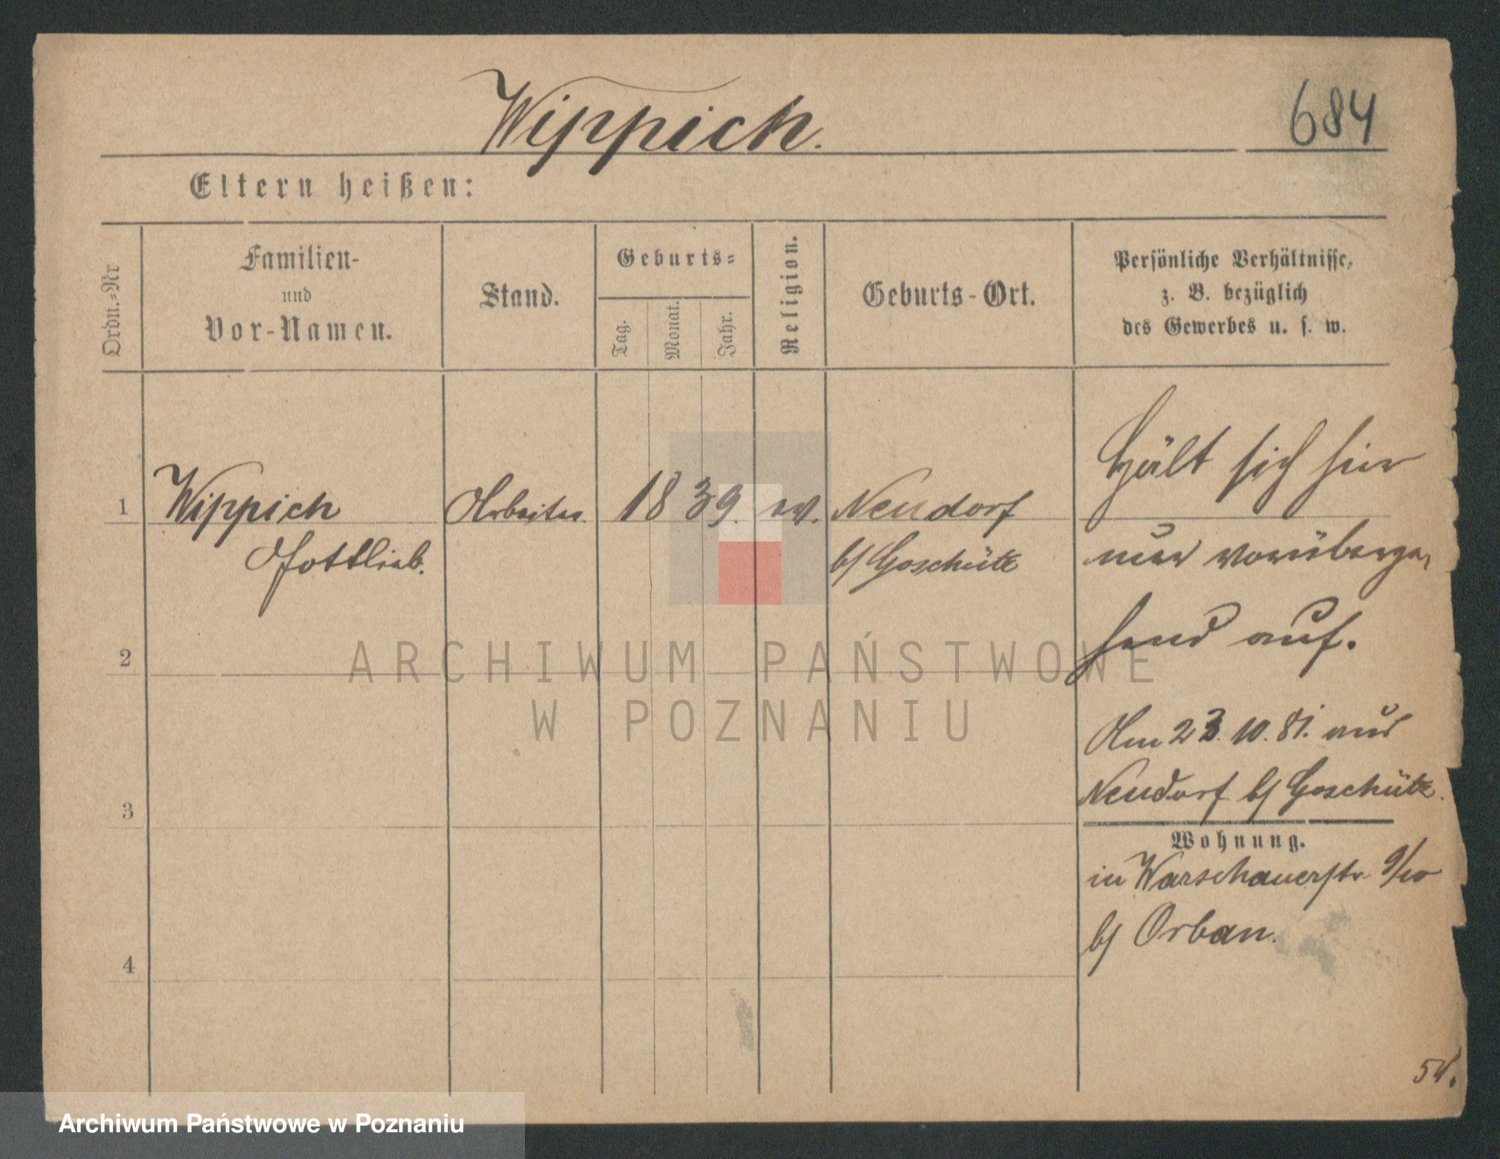 Wippich.
684
Eltern heißen:
Ordn.=Nr
Familien-
und
Vor-Namen.
Stand.
Geburts=
Tag.
Monat.
Jahr.
Religion.
Geburts-Ort.
Persönliche Verhältnisse,
z. B. bezüglich
des Gewerbes u. s. w.
1
Wippich
Gottlieb.
Arbeiter.
1839.
ev.
Neudorf
b/ Goschütz
Hält sich hier
nur vorüberge-
hend auf.
Am 23.10.81. aus
Neudorf b/ Goschütz.
Wohnung.
in Warschauerstr 9/10
b/ Orban.
2
3
4
ARCHIWUM PAŃSTWOWE
W POZNANIU
Archiwum Państwowe w Poznaniu